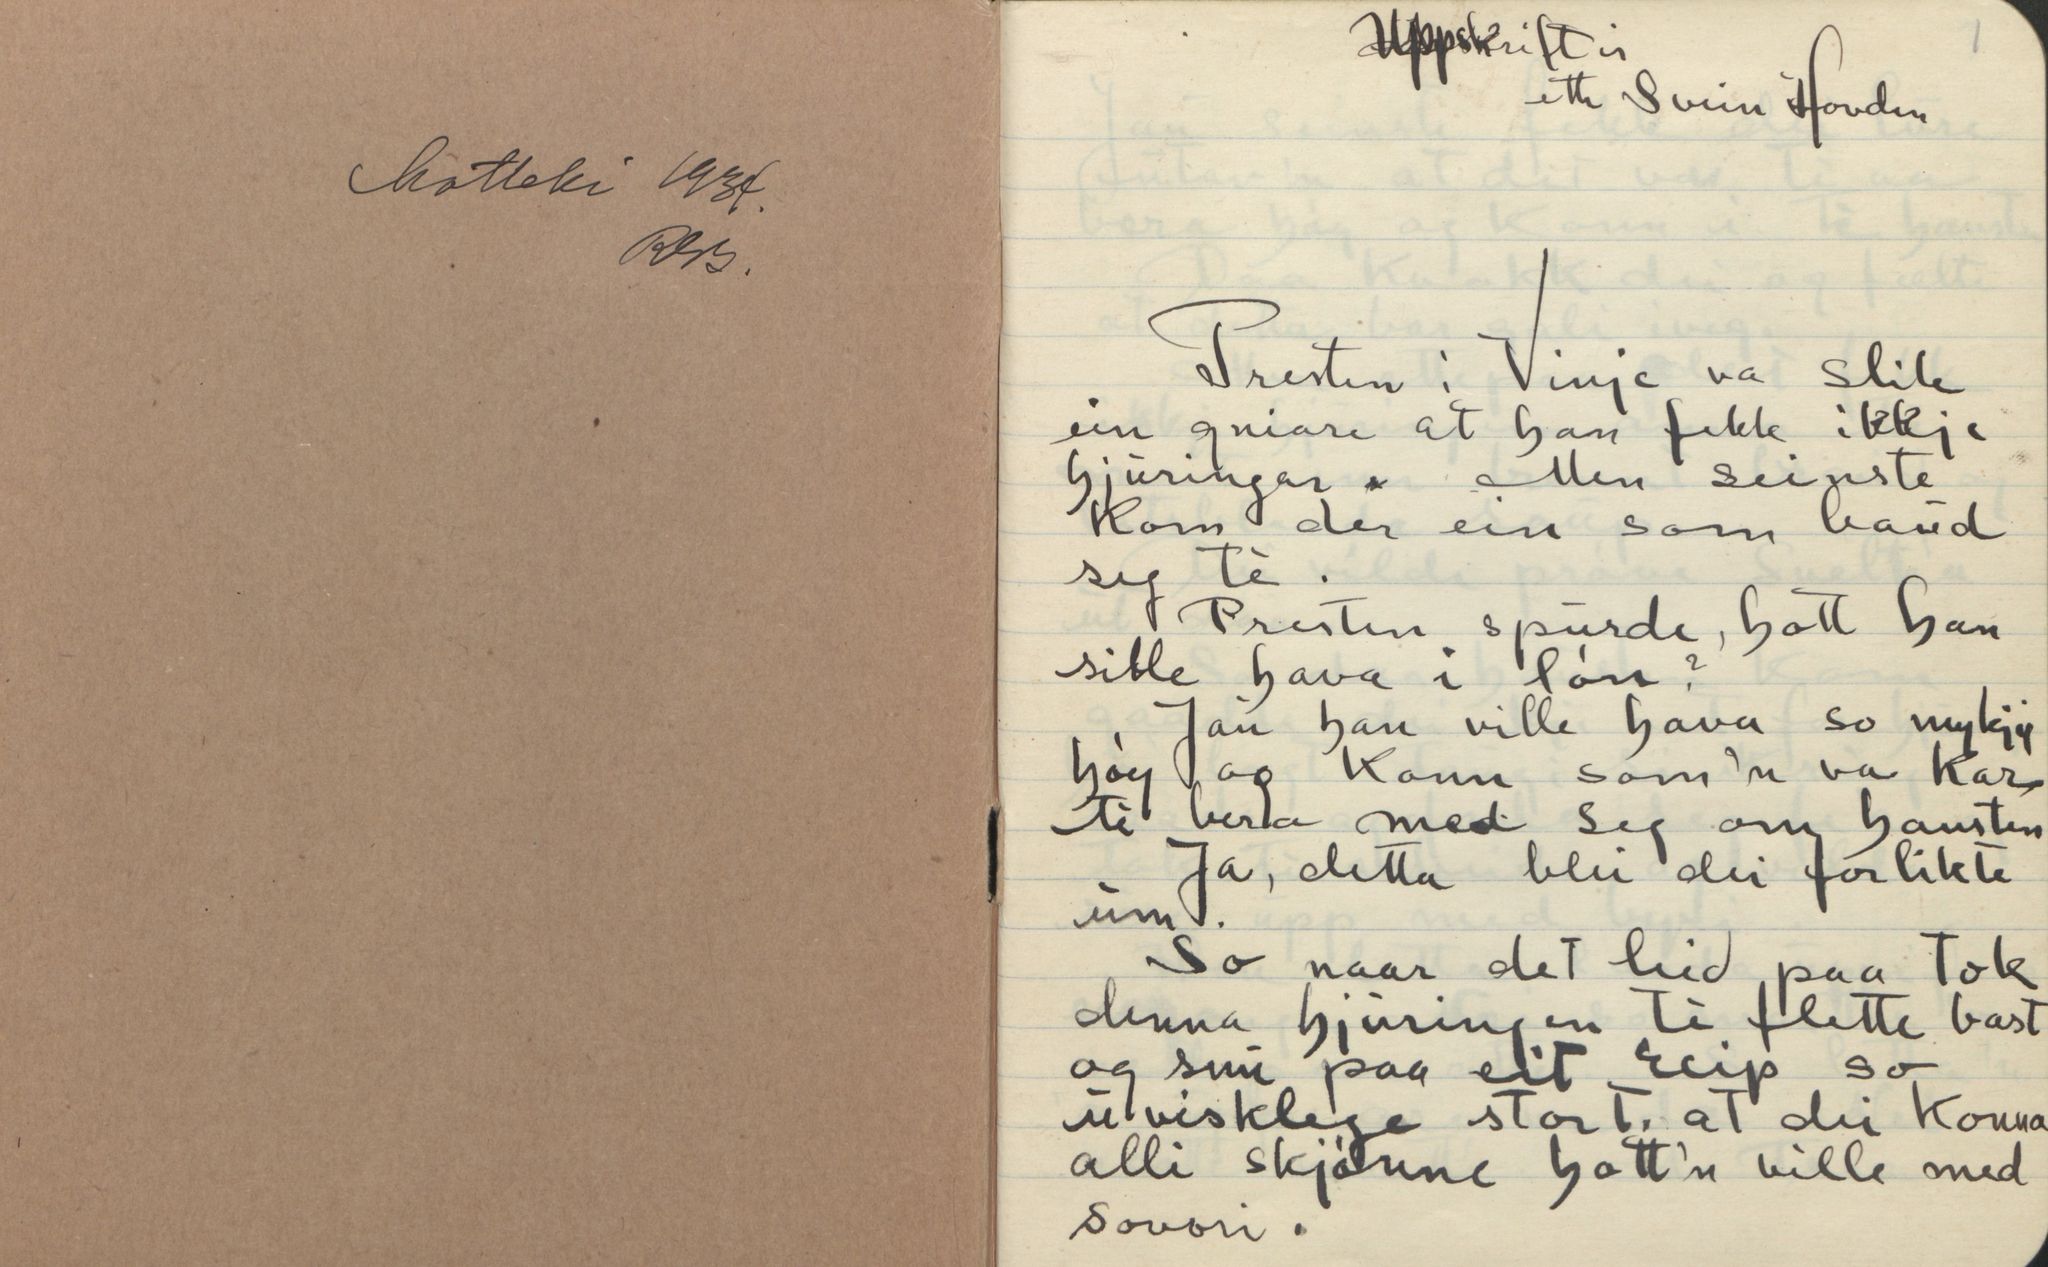 Motteki 1934.
RB.
1
Uppskrifter
ette Svein Hovden
Presten i Vinje va slik
ein gniare at han fekk ikkje
hjuringar. Men seinste
kom der ein som baud
seg tè.
Presten spurde, hott han
sille hava i lón?
Jau han ville hava so mykjy
hóy og konn som'n va kar
tè bera med seg om hausten
Ja, detta blei dei forlikte
um.
So naar det leid paa tok
denna hjuringen tè flette bast
og snu paa eit reip so
uvisklege stort. at dei konna
alli skjónne hott'n ville med
sovori.